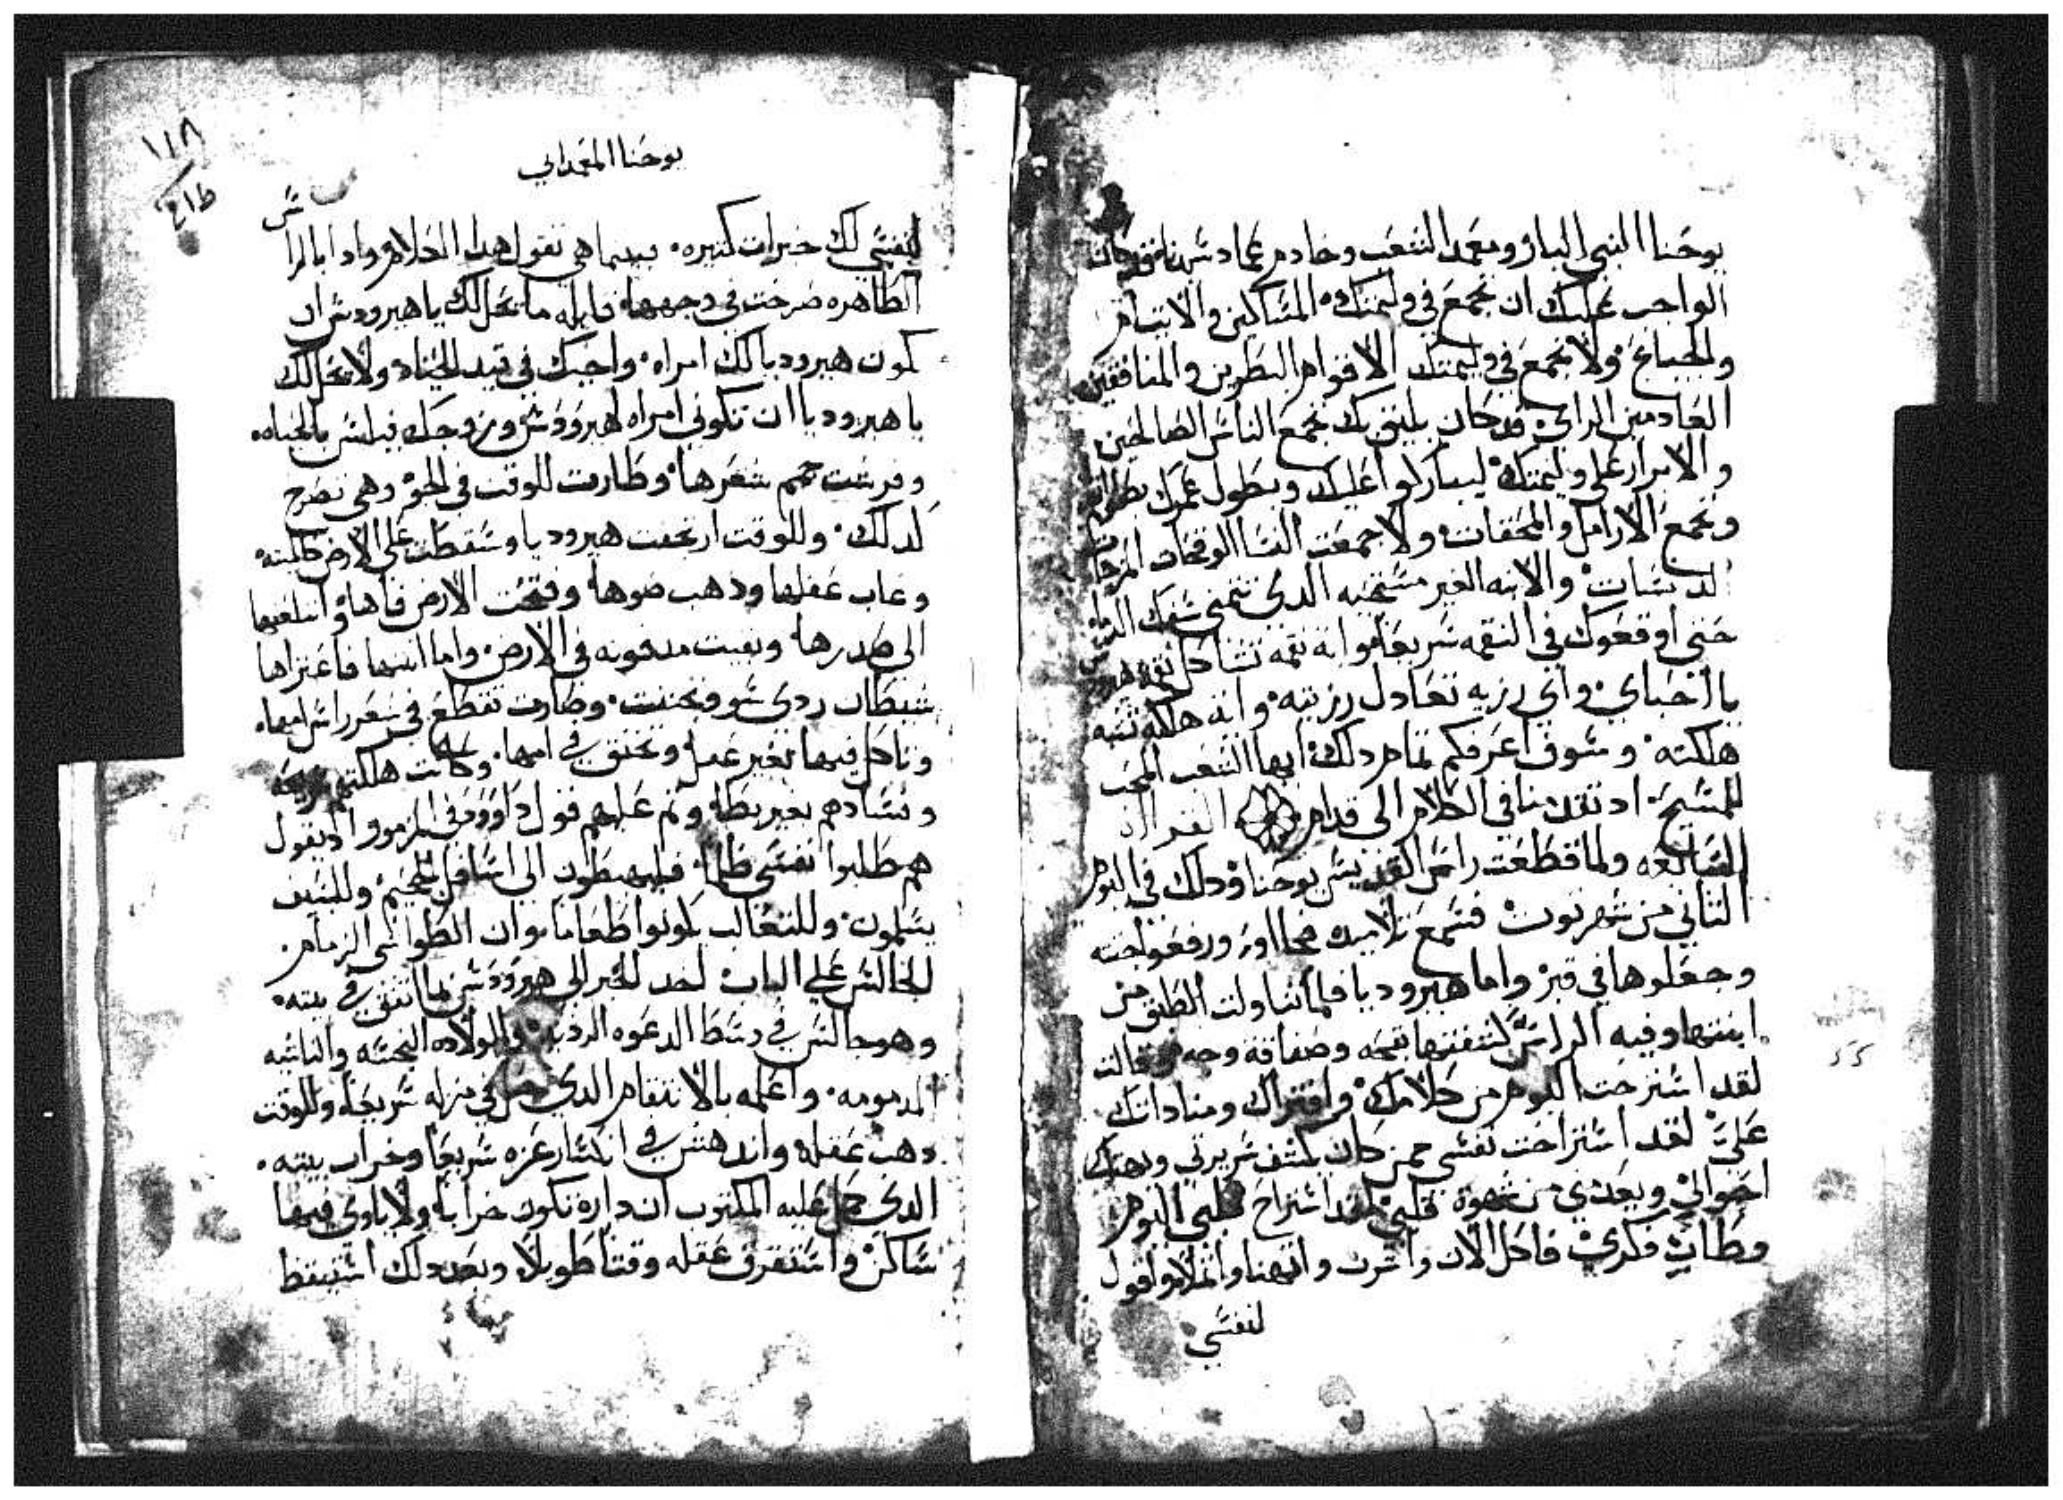 يوحنا النبي البار ومعمد الشعب وخادم عماد سيدنا فقد كان
الواجب عليك ان تجمع في وليمتك المساكين والايتام
والجياع ولا تجمع في وليمتك الاقوام البطرين والمنافقين
العادمين الراي قد كان يليق بك تجمع الناس الصالحين
والابرار على وليمتك ليباركوا عليك ويطول عمرك
وتجمع الارامل والمحقات ولا جمعت النسا الوقحات
الدنسات والابنه الغير مستحيه الذي تتمنى سفك
حتى اوقعوك في النقمه سريعا فواية نقمه تشاكل نقمة هيرودس
يا احباي واي رزيه تعادل رزيته واية هلكه تشبه
هلكته وسوف اعرفكم تمام ذلك ايها الشعب المحب
للمسيح اد تقدمنا في الكلام الى قدام القراه
السابعه ولما قطعت راس القديس يوحنا وذلك في اليوم
الثاني من شهر توت فسمع تلاميده فجااوا ورفعوا جثته
وجعلوها في قبر واما هيروديا فلما تناولت الطبق من
ابنتها وفيه الراس كشفتها بقحه وصفاقة وجه وقالت
لقد استرحت اليوم من كلامك وافتراك ومناداتك
علي لقد استراحت نفسي ممن كان يكشف سريرتي ويهتك
احوالي ويعدي من شهوة قلبي لقد استراح قلبي اليوم
وطاب فكري فاكل الان واشرب واتهنا واتملا واقول
لنفسي
١١٨
يوحنا المعمداني
لنفسي لك خيرات كتيره بينما هي تقول هدا الكلام وادا بالراس
الطاهره صرخت في وجهها قايله ما تحل لك يا هيرودس ان
تكون هيروديا لك امراه واخيك في قيد الحياه ولا يحل لك
يا هيروديا ان تكوني امراه لهيرودس وزوجك فيلبس بالحياه
وفرشت جمم شعرها وطارت للوقت في الجو وهي تصرخ
لدلك وللوقت ارتجفت هيروديا وسقطت على الارض كالميته
وغاب عقلها ودهب ضوها وفتحت الارض فاها وابتلعتها
الى صدرها وبقيت مدفونه في الارض واما ابنتها فاعتراها
شيطان ردي سو فجننت وصارت تقطع في شعر راس امها
وتاكل فيها بغير عقل وتخنق في امها وكانت هلكتهم سريعه
وفسادهم بغير بطا وتم عليهم قول داوود في المزمور اد يقول
هم طلبوا نفسي ظلما فيهبطون الى اسافل الجحيم وللسيف
يسلمون وللثعالب يكونوا طعاما وان الطواشي الزمام
الجالس على الباب اخد الخبر الى هيرودس بما اتفق في بيته
وهو جالس في وسط الدعوه الرديه والولاده النجسه والناشيه
المدمومه واعلمه بالانتقام الدي حل في منزله سريعا وللوقت
دهب عقله واندهش في انكسار عزه سريعا وخراب بيته
الدي كمل عليه المكتوب ان داره تكون خرابا ولا ياوي فيها
ساكن واستغرق عقله وقتا طويلا وبعد دلك استيقظ